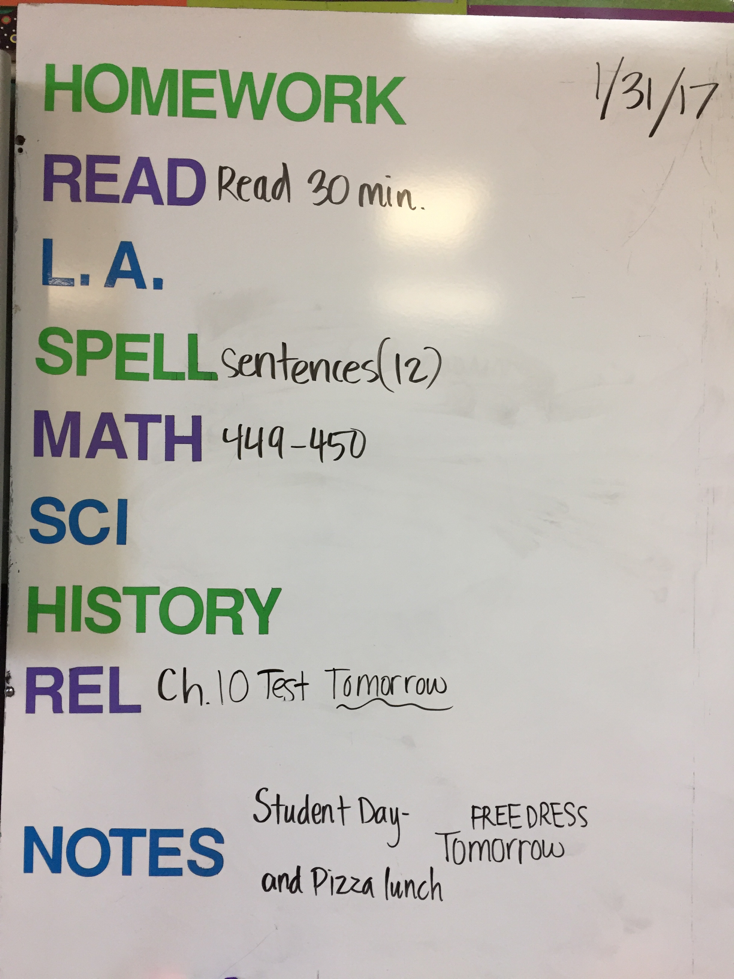 HOMEWORK 1/31/17
READ Read 30 min.
L.A.
SPELL sentences(12)
MATH 449-450
SCI
HISTORY
REL Ch.10 Test Tomorrow
Student Day- FREE DRESS
NOTES Tomorrow
and Pizza lunch